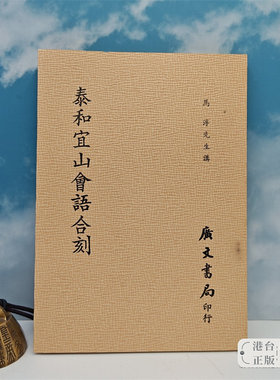 泰和宜山會語合刻
馬浮先生講
廣文書局印行
港台
正版